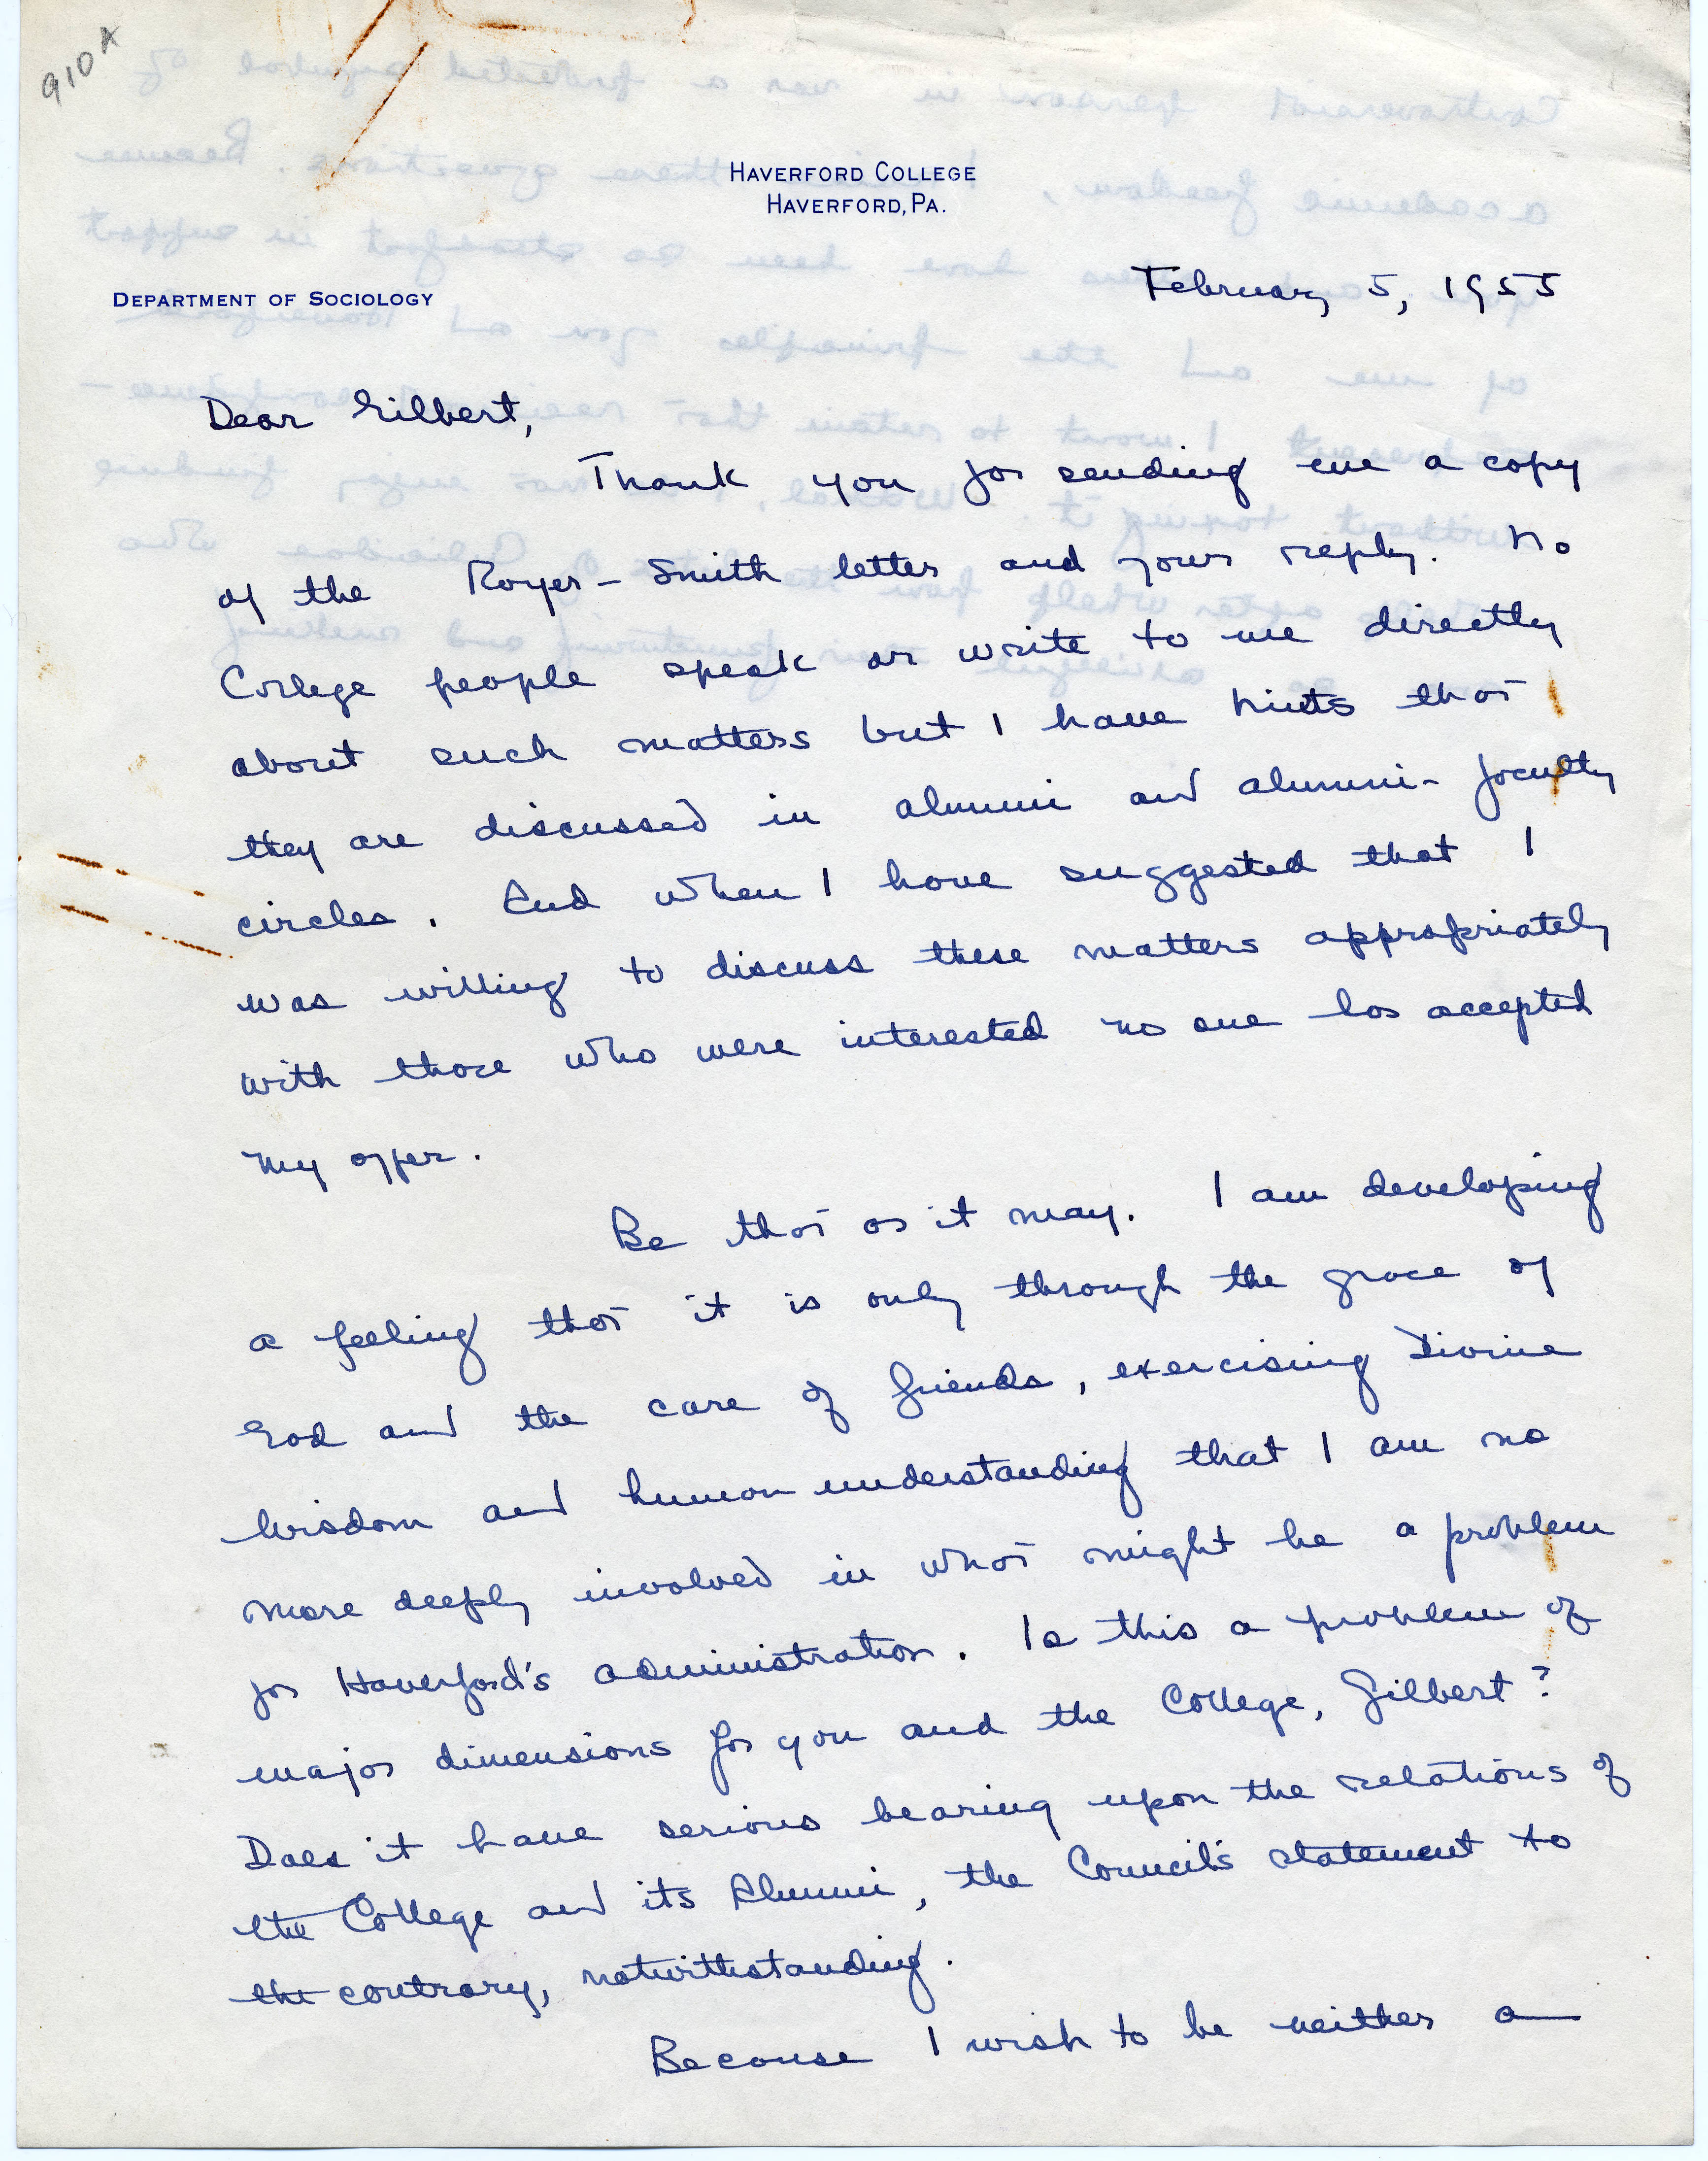 910A
HAVERFORD COLLEGE
HAVERFORD, PA.
DEPARTMENT OF SOCIOLOGY
February 5, 1955
Dear Gilbert,
Thank you for sending me a copy
of the Royer-Smith letter and your reply. No
College people speak or write to me directly
about such matters but I have hints that
they are discussed in alumni and alumni-faculty
circles. And when I have suggested that I
was willing to discuss these matters appropriately
with those who were interested no one has accepted
my offer.
Be that as it may. I am developing
a feeling that it is only through the grace of
God and the care of friends, exercising Divine
Wisdom and human understanding that I am no
more deeply involved in what might be a problem
for Haverford's administration. Is this a problem of
major dimensions for you and the College, Gilbert?
Does it have serious bearing upon the relations of
the College and its Alumni, the Council's statement to
the contrary, notwithstanding.
Because I wish to be neither a